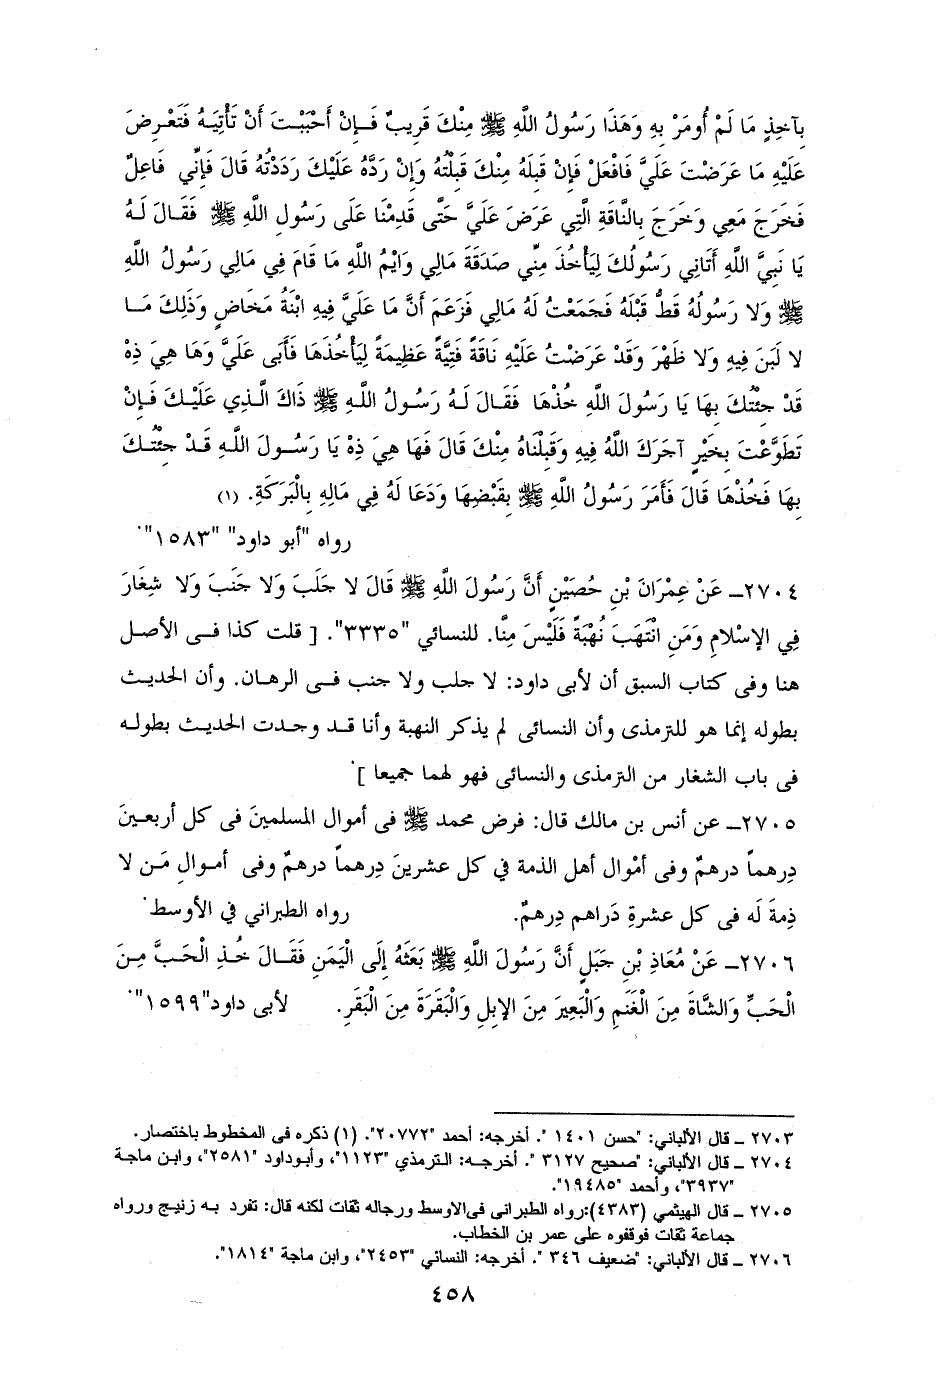 بِآخِذٍ مَا لَمْ أُومَرْ بِهِ وَهَذَا رَسُولُ اللَّهِ ﷺ مِنْكَ قَرِيبٌ فَإِنْ أَحْبَبْتَ أَنْ تَأْتِيَهُ فَتَعْرِضَ
عَلَيْهِ مَا عَرَضْتَ عَلَيَّ فَافْعَلْ فَإِنْ قَبِلَهُ مِنْكَ قَبِلْتُهُ وَإِنْ رَدَّهُ عَلَيْكَ رَدَدْتُهُ قَالَ فَإِنِّي فَاعِلٌ
فَخَرَجَ مَعِي وَخَرَجَ بِالنَّاقَةِ الَّتِي عَرَضَ عَلَيَّ حَتَّى قَدِمْنَا عَلَى رَسُولِ اللَّهِ ﷺ فَقَالَ لَهُ
يَا نَبِيَّ اللَّهِ أَتَانِي رَسُولُكَ لِيَأْخُذَ مِنِّي صَدَقَةَ مَالِي وَايْمُ اللَّهِ مَا قَامَ فِي مَالِي رَسُولُ اللَّهِ
ﷺ وَلا رَسُولُهُ قَطُّ قَبْلَهُ فَجَمَعْتُ لَهُ مَالِي فَزَعَمَ أَنَّ مَا عَلَيَّ فِيهِ ابْنَةُ مَخَاضٍ وَذَلِكَ مَا
لا لَبَنَ فِيهِ وَلا ظَهْرَ وَقَدْ عَرَضْتُ عَلَيْهِ نَاقَةً فَتِيَّةً عَظِيمَةً لِيَأْخُذَهَا فَأَبَى عَلَيَّ وَهَا هِيَ ذِهْ
قَدْ جِئْتُكَ بِهَا يَا رَسُولَ اللَّهِ خُذْهَا فَقَالَ لَهُ رَسُولُ اللَّهِ ﷺ ذَاكَ الَّذِي عَلَيْكَ فَإِنْ
تَطَوَّعْتَ بِخَيْرٍ آجَرَكَ اللَّهُ فِيهِ وَقَبِلْنَاهُ مِنْكَ قَالَ فَهَا هِيَ ذِهْ يَا رَسُولَ اللَّهِ قَدْ جِئْتُكَ
بِهَا فَخُذْهَا قَالَ فَأَمَرَ رَسُولُ اللَّهِ ﷺ بِقَبْضِهَا وَدَعَا لَهُ فِي مَالِهِ بِالْبَرَكَةِ. (١)
رواه "أبو داود" "١٥٨٣".
٢٧٠٤ـ عَنْ عِمْرَانَ بْنِ حُصَيْنٍ أَنَّ رَسُولَ اللَّهِ ﷺ قَالَ لا جَلَبَ وَلا جَنَبَ وَلا شِغَارَ
فِي الإِسْلامِ وَمَنِ انْتَهَبَ نُهْبَةً فَلَيْسَ مِنَّا. للنسائي "٣٣٣٥". [ قلت كذا فى الأصل
هنا وفى كتاب السبق أن لأبى داود: لا جلب ولا جنب فى الرهان. وأن الحديث
بطوله إنما هو للترمذى وأن النسائى لم يذكر النهبة وأنا قد وجدت الحديث بطوله
فى باب الشغار من الترمذى والنسائى فهو لهما جميعا ].
٢٧٠٥ـ عن أنس بن مالك قال: فرض محمد ﷺ فى أموال المسلمينَ فى كل أربعينَ
دِرهماً درهمٌ وفى أمْوال أهل الذمة في كل عشرينَ دِرهماً درهمٌ وفى أموالِ مَن لا
ذِمةَ لَه فى كل عشرةِ دَراهم دِرهمٌ. رواه الطبراني في الأوسط.
٢٧٠٦ـ عَنْ مُعَاذِ بْنِ جَبَلٍ أَنَّ رَسُولَ اللَّهِ ﷺ بَعَثَهُ إِلَى الْيَمَنِ فَقَالَ خُذِ الْحَبَّ مِنَ
الْحَبِّ وَالشَّاةَ مِنَ الْغَنَمِ وَالْبَعِيرَ مِنَ الإِبِلِ وَالْبَقَرَةَ مِنَ الْبَقَرِ. لأبى داود"١٥٩٩".
٢٧٠٣ ـ قال الألباني: "حسن ١٤٠١ ". أخرجه: أحمد "٢٠٧٧٢". (١) ذكره فى المخطوط باختصار.
٢٧٠٤ ـ قال الألباني: "صحيح ٣١٢٧ ". أخرجه: الترمذي "١١٢٣"، وأبوداود "٢٥٨١"، وابن ماجة
"٣٩٣٧"، وأحمد "١٩٤٨٥".
٢٧٠٥ ـ قال الهيثمي (٤٣٨٣):رواه الطبرانى فى الاوسط ورجاله ثقات لكنه قال: تفرد به زنيج ورواه
جماعة ثقات فوقفوه على عمر بن الخطاب.
٢٧٠٦ ـ قال الألباني: "ضعيف ٣٤٦ ". أخرجه: النسائي "٢٤٥٣"، وابن ماجة "١٨١٤".
٤٥٨